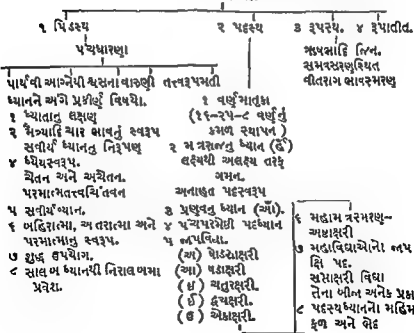 ૧ પિંડસ્થ
૨ પદસ્થ
૩ રૂપસ્થ.
૪ રૂપાતીત.
પંચધારણા
ઋષભાદિ જિન.
સમવસરણસ્થિત
વીતરાગ ભાવસ્મરણ
પાર્થવી આગ્નેયી શ્વસના વારુણી તત્ત્વરૂપમતી
ધ્યાનને અંગે પ્રકીર્ણ વિષયો.
૧ ધ્યાતાનુ લક્ષણ
૨ મૈત્ર્યાદિ ચાર ભાવનું સ્વરૂપ
સવીર્ય ધ્યાનનુ નિરૂપણ
૪ ધ્યેયસ્વરૂપ.
ચેતન અને અચેતન.
પરમાત્મતત્ત્વચિંતવન
૫ સવીર્યધ્યાન.
૬ બહિરાત્મા, અંતરાત્મા અને
પરમાત્માનુ સ્વરૂપ.
૭ શુદ્ધ ઉપયોગ.
૮ સાલંબ ધ્યાનથી નિરાલંબમાં
પ્રવેશ.
૧ વર્ણમાતૃકા
(૧૬-૨૫-૮ વર્ણનું
કમળ સ્થાપન)
૨ મંત્રરાજનુ ધ્યાન (ર્હં)
લક્ષ્યથી અલક્ષ્ય તરફ
ગમન.
અનાહત પદસ્વરૂપ
૩ પ્રણવનુ ધ્યાન (ઓં).
૪ પંચપરમેષ્ઠી પદધ્યાન
૫ જપવિદ્યા.
(અ) ષોડશાક્ષરી
(આ) ષડાક્ષરી
(ઇ) ચતુરક્ષરી.
(ઈ) દ્વયક્ષરી.
(ઉ) એકાક્ષરી.
૬ મહામંત્રસ્મરણ–
અષ્ટાક્ષરી
૭ મહાવિદ્યાઓનો જાપ
ક્ષિ પદ.
સપ્તાક્ષરી વિદ્યા
તેના બીજ અનેક પ્રકા
૮ પદસ્થધ્યાનનો મહિમ
ફળ અને ભેદ